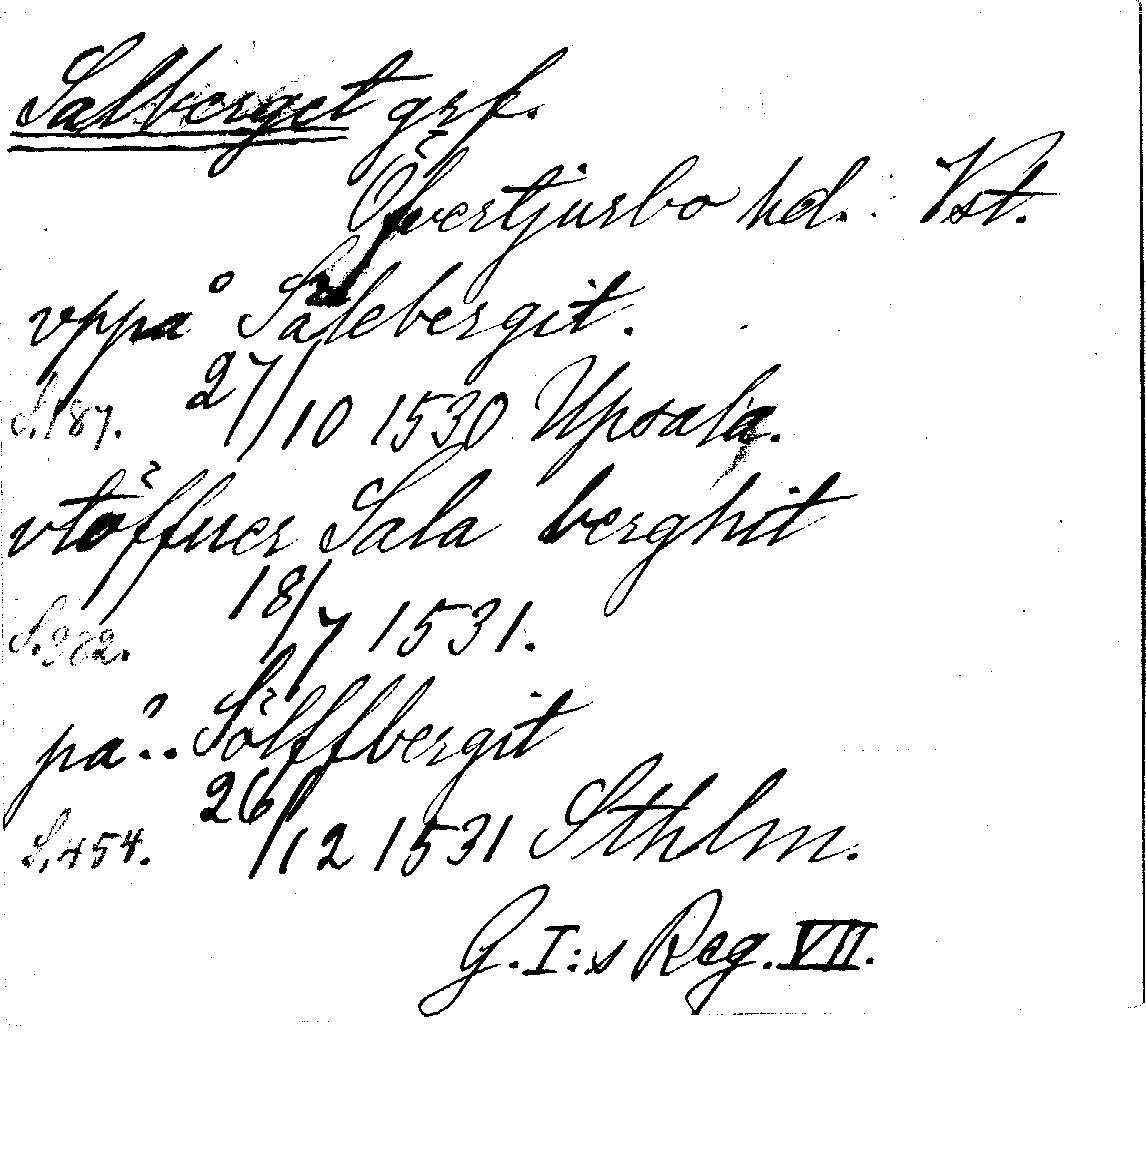 Salberget grf.
Övertjurbo hd. Vst.
vppå Salebergit.
S. 187. 27/10 1530 Upsala.
vtöffuer Sala berghit
S. 382. 18/7 1531.
på .. Sölffbergit
S. 454. 26/12 1531 Sthlm.
G. I:s Reg. VII.